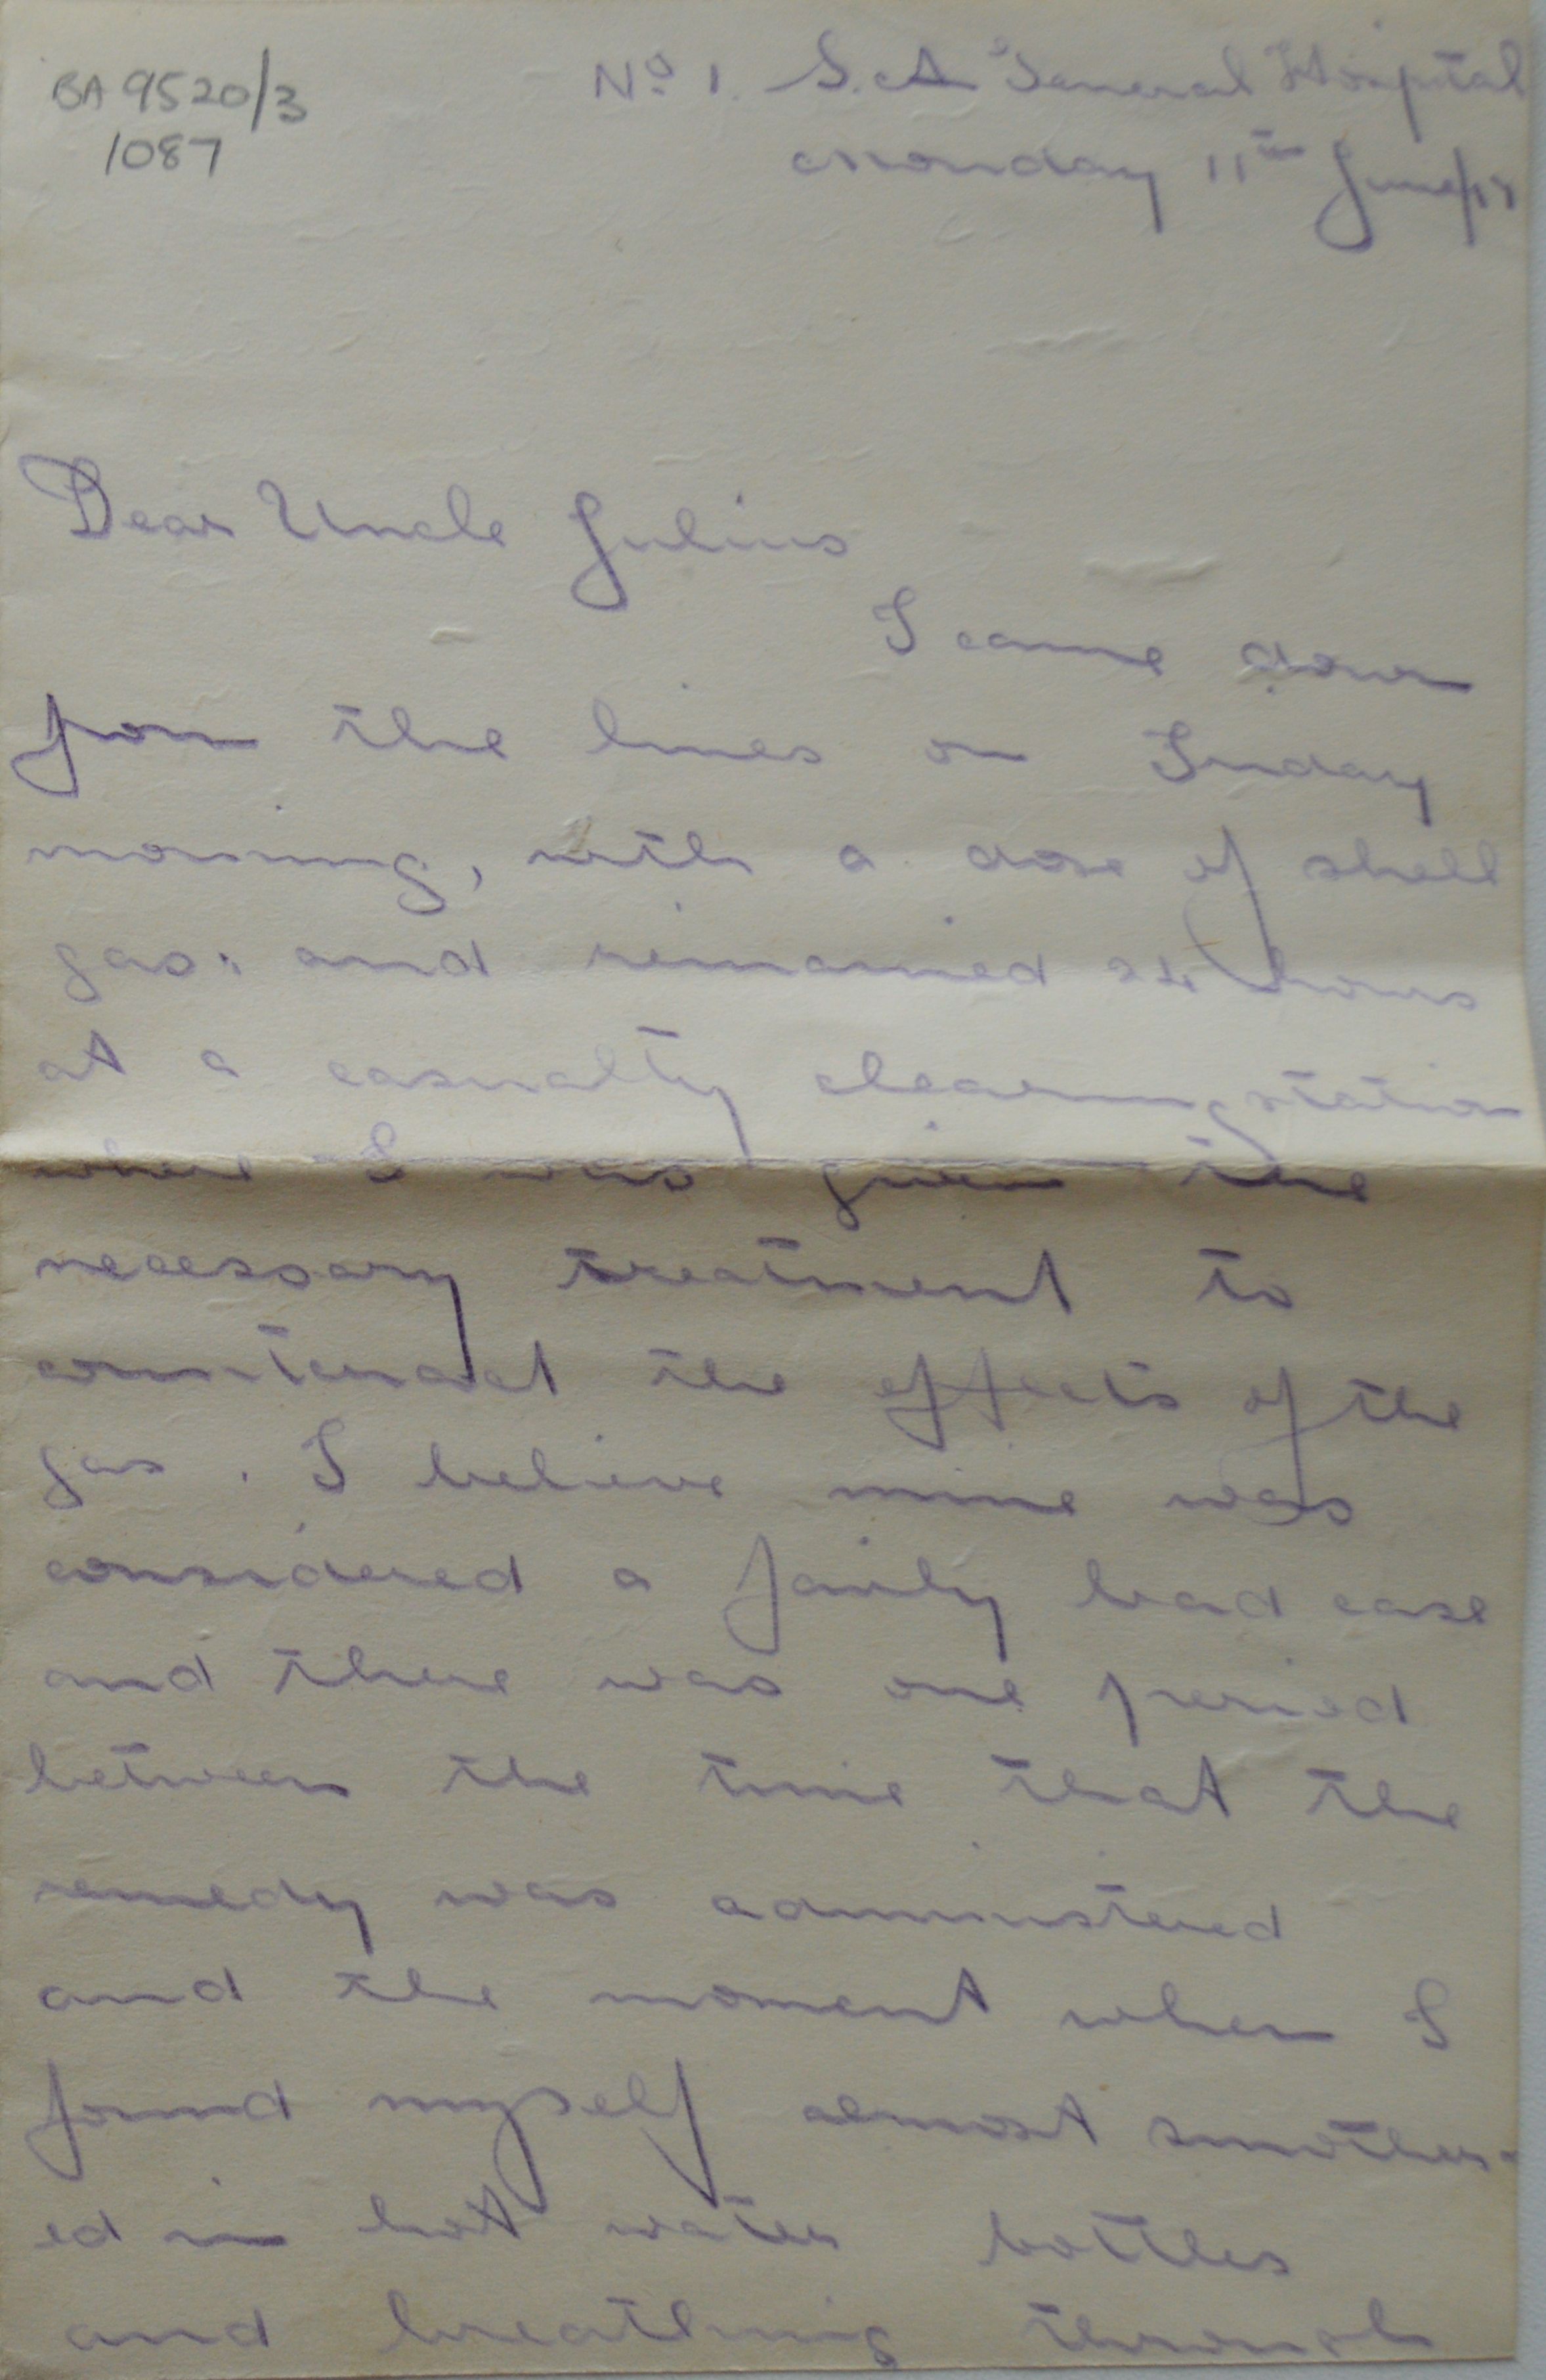 BA 9520/3
1087
No 1. S.A General Hospital
Monday 11th June/17
Dear Uncle Julius
I came down
from the lines on Friday
morning, with a dose of shell
gas. and remained 24 hours
at a casualty clearing station
where I was given the
necessary treatment to
counteract the effects of the
gas. I believe mine was
considered a fairly bad case
and there was one period
between the time that the
remedy was administered
and the moment when I
found myself almost smother-
ed in hot water bottles
and breathing through